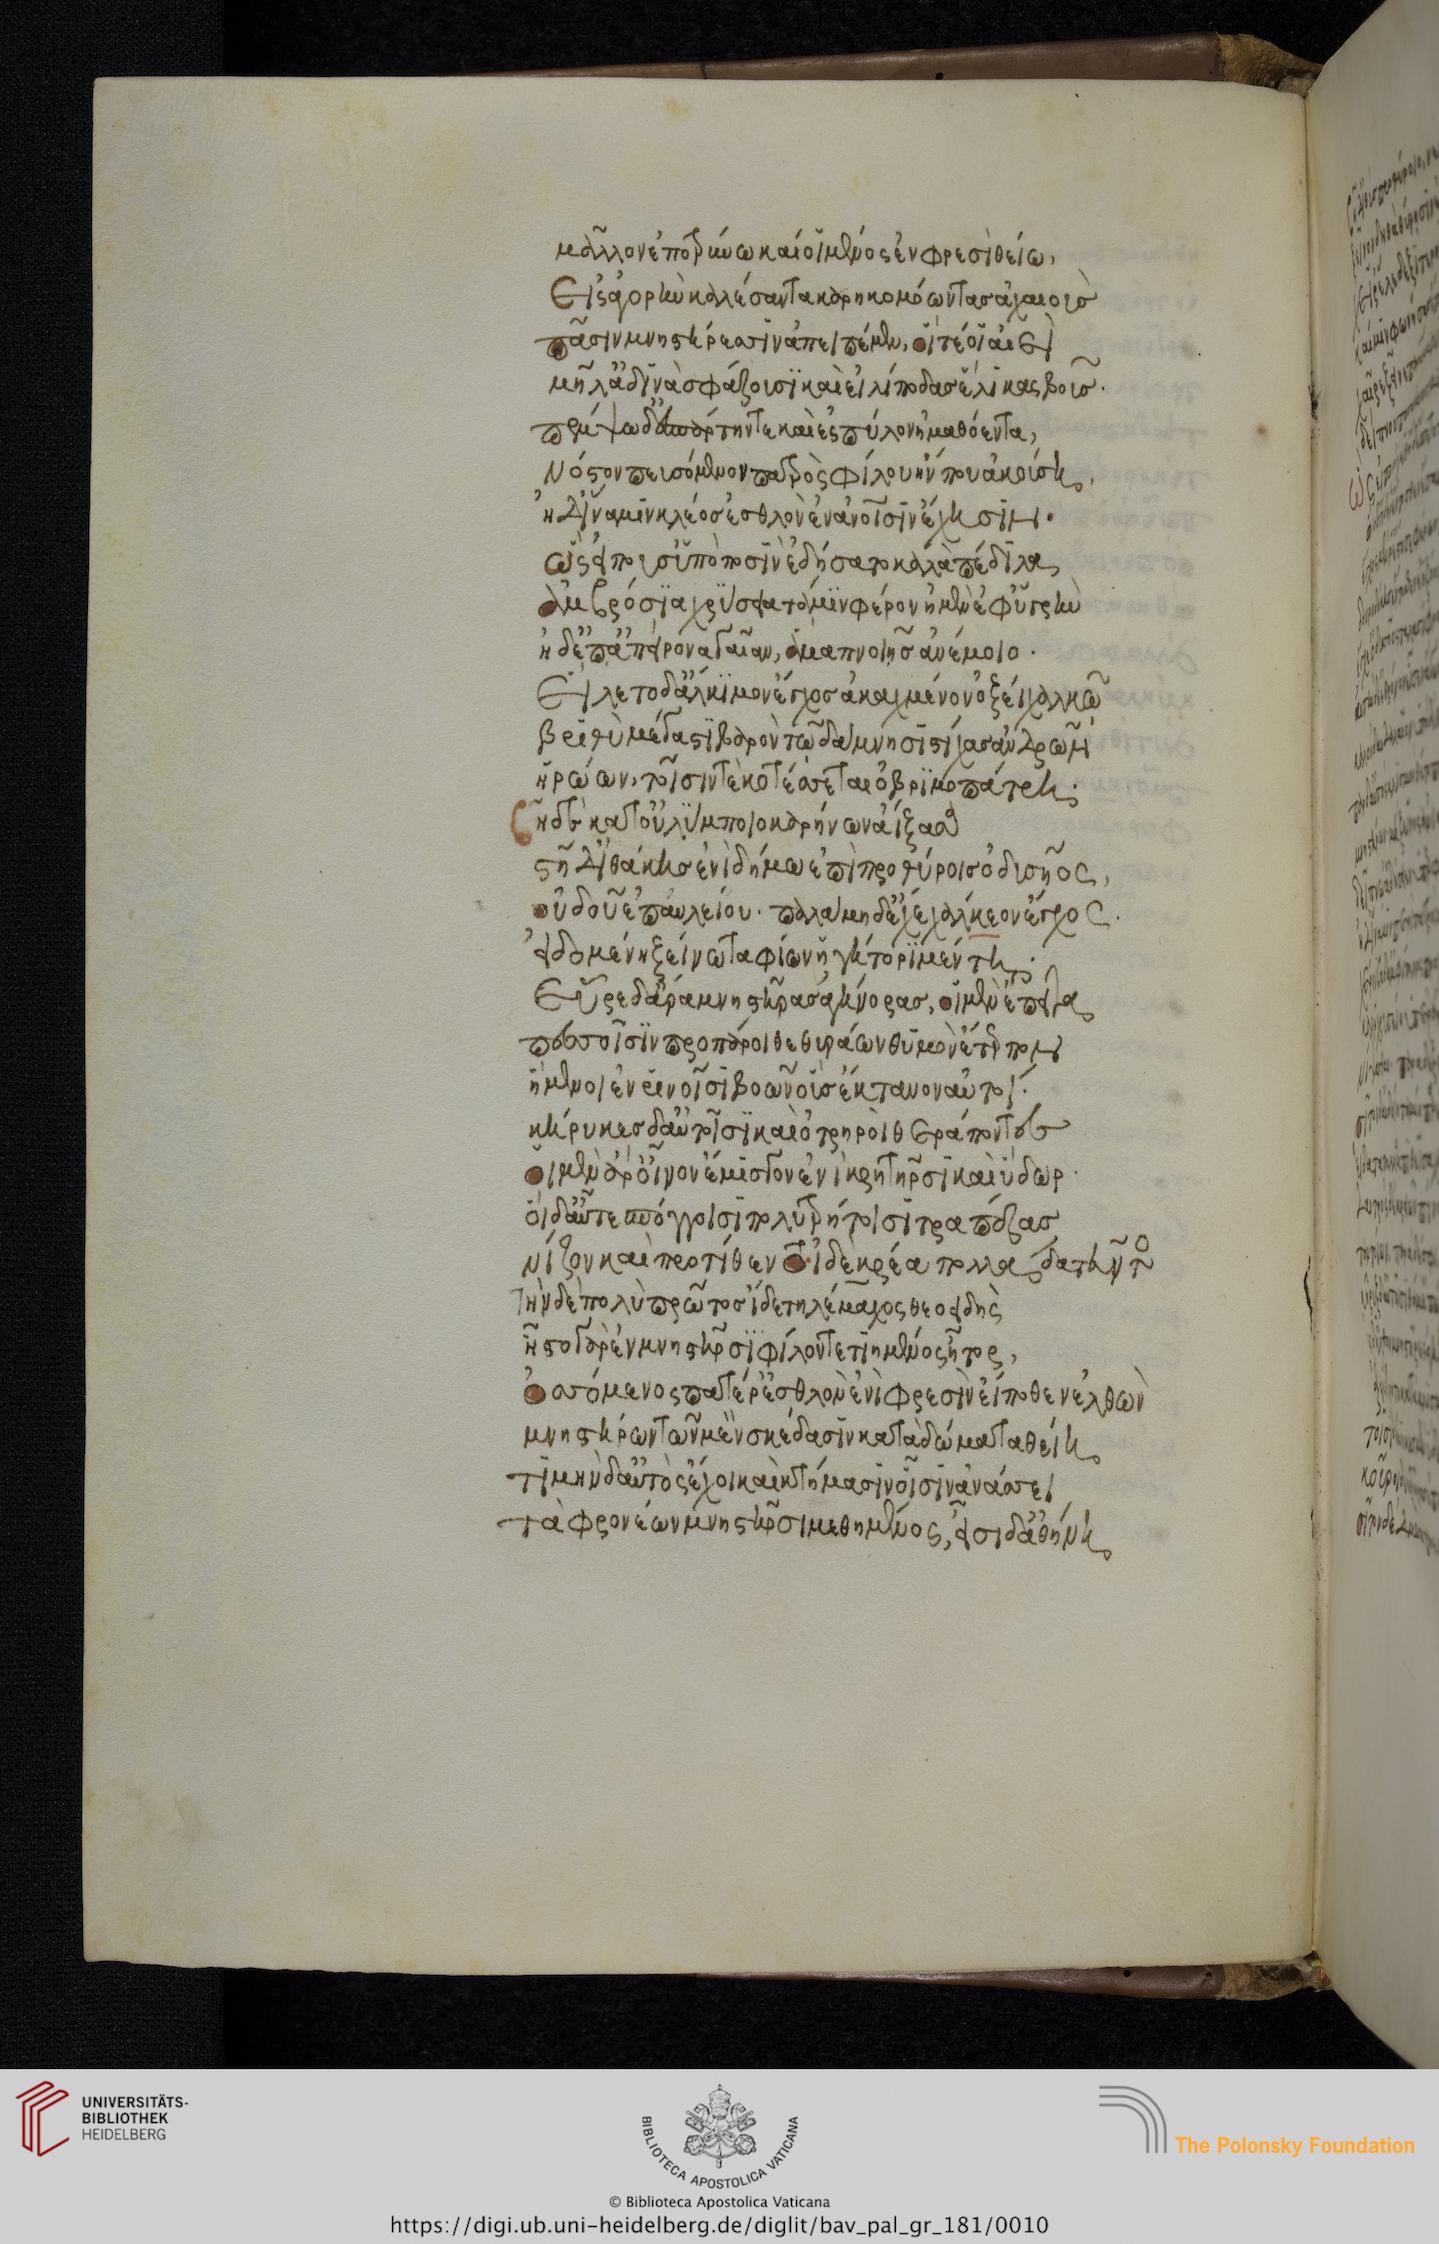 μᾶλλον ἐποτρύνω καί οἱ μένος ἐν φρεσὶ θείω,
Εἰς ἀγορὴν καλέσαντα καρηκομόωντας ἀχαιοὺς
πᾶσιν μνηστήρεσσιν ἀπειπέμεν, οἵ τέ οἱ αἰεὶ
μῆλ' ἀδινὰ σφάζουσι καὶ εἰλίποδας ἕλικας βοῦς.
πέμψω δ' ἐς σπάρτην τε καὶ ἐς πύλον ἠμαθόεντα,
Νόστον πευσόμενον πατρὸς φίλου ἤν που ἀκούσῃ,
ἠδ' ἵνα μιν κλέος ἐσθλὸν ἐν ἀνοισιν ἔχῃσιν.
ὣς εἰποῦσ' ὑπὸ ποσσὶν ἐδήσατο καλὰ πέδιλα,
ἀμβρόσια χρύσεια τά μιν φέρον ἠμὲν ἐφ' ὑγρὴν
ἠδ' ἐπ' ἀπείρονα γαῖαν, ἅμα πνοιῇς ἀνέμοιο.
Εἵλετο δ' ἄλκιμον ἔγχος ἀκαχμένον ὀξέι χαλκῷ
βριθὺ μέγα στιβαρὸν τῷ δάμνησι στίχας ἀνδρῶν
ἡρώων, τοῖσίν τε κοτέσσεται ὀβριμοπάτρη.
βῆ δὲ κατ' οὐλύμποιο καρήνων ἀίξασα
στῆ δ' ἰθάκης ἐνὶ δήμω ἐπὶ προθύροις ὀδυσῆος,
οὐδοῦ ἐπ' αὐλείου. παλάμη δ' ἔχε χάλκεον ἔγχος.
εἰδομένη ξείνω ταφίων ἡγήτορι μέντῃ.
Εὗρε δ' ἄρα μνηστῆρας ἀγήνορας, οἱ μὲν ἔπειτα
πεσσοῖσιν προπάροιθε θυράων θυμὸν ἔτερπον
ἥμενοι ἐν ῥινοῖσι βοῶν οὓς ἔκτανον αὐτοί.
κήρυκες δ' αὐτοῖσι καὶ ὀτρηροὶ θεράποντες
οἱ μὲν ἄρ' οἶνον ἔμισγον ἐνὶ κρητῆρσι καὶ ὕδωρ.
οἱ δ' αὖτε σπόγγοισι πολυτρήτοισι τραπέζας
νίζον καὶ προτίθεν τοὶ δὲ κρέα πολλὰ δατεῦντο
Τὴν δὲ πολὺ πρῶτος ἴδε τηλέμαχος θεοειδὴς
ἧστο γὰρ ἐν μνηστῆρσι φίλον τετιημένος ἦτορ,
ὀσσόμενος πατέρ' ἐσθλὸν ἐνὶ φρεσὶν εἴ ποθεν ἐλθὼν
μνηστήρων τῶν μὲν σκέδασιν κατὰ δώματα θείη,
τιμὴν δ' αὐτὸς ἔχοι καὶ κτήμασιν οἷσιν ἀνάσσει
τὰ φρονέων μνηστῆρσι μεθήμενος, εἴσιδ' ἀθήνη,
UNIVERSITÄTS-
BIBLIOTHEK
HEIDELBERG
BIBLIOTECA APOSTOLICA VATICANA
The Polonsky Foundation
© Biblioteca Apostolica Vaticana
https://digi.ub.uni-heidelberg.de/diglit/bav_pal_gr_181/0010